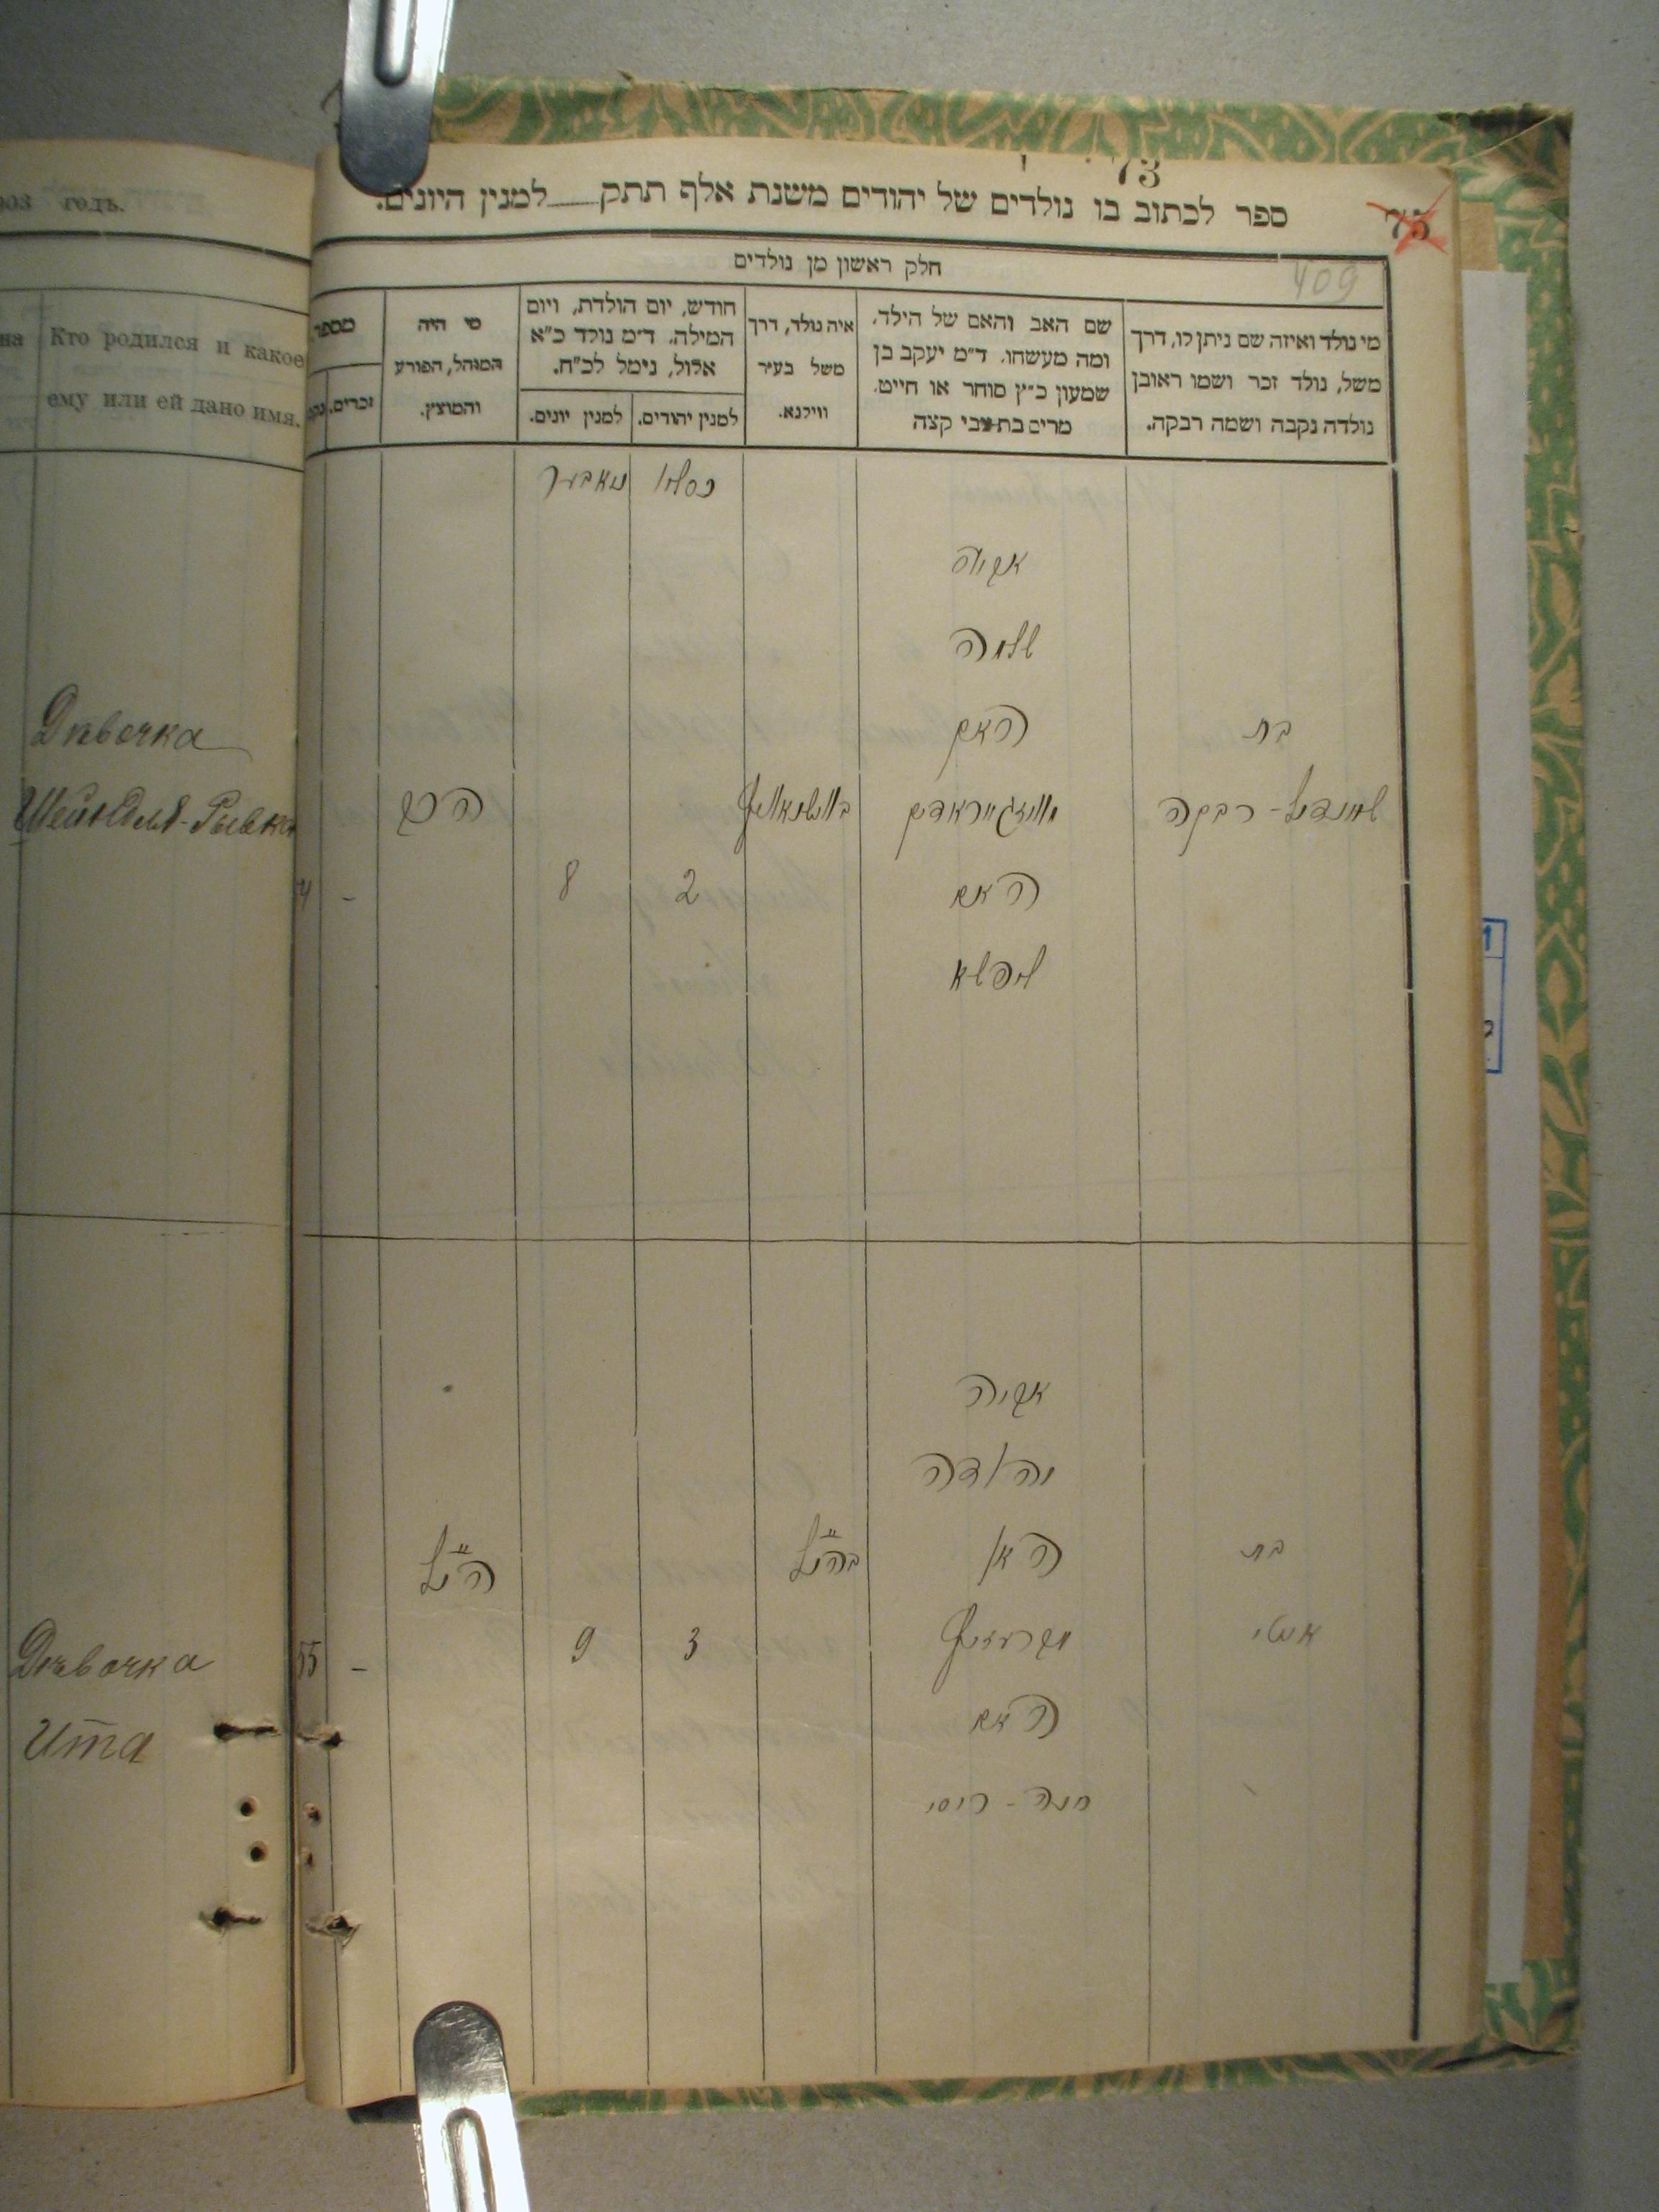 903 годъ.
Кто родился и какое
ему или ей дано имя.
Дѣвочка
Шейндля-Рывка
Дѣвочка
Ита
73
75
ספר לכתוב בו נולדים של יהודים משנת אלף תתק___למנין היונים.
409
חלק ראשון מן נולדים
מי נולד ואיזה שם ניתן לו, דרך
משל, נולד זכר ושמו ראובן
נולדה נקבה ושמה רבקה.
שם האב והאם של הילד,
ומה מעשהו. ד״מ יעקב בן
שמעון כ״ץ סוחר או חייט.
מרים בת צבי קצה
איה נולד, דרך
משל בעיר
ווילנא.
חודש, יום הולדת, ויום
המילה. ד״מ נולד כ״א
אלול, נימל לכ״ח.
למנין יהודים.
למנין יונים.
מי היה
המוהל, הפורע
והמוצץ.
מספר
זכרים.
כסלו נאבער
אביה
שלמה
בת
האב
שיינדל-רבקה
האם
2 8 -
ליפשא
אביה
יהודה
בת
בהנ״ל
הנ״ל
איטי
3 9 - 55
האם
חנה-ריסי